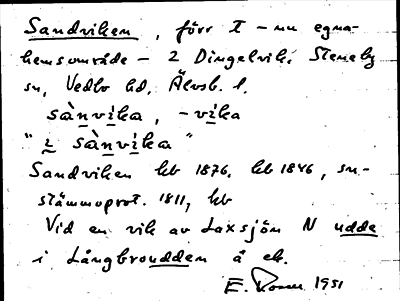 Sandviken, förr T - nu egna-
hemsområde - 2 Dingelvik, Steneby
sn, Vedbo hd, Älvsb. l.
sànvika, -vika
"i sànvika"
Sandviken kb 1876, kb 1846, sn-
stämmoprot. 1811, kb
Vid en vik av Laxsjön N udde
i Långbroudden å ek.
E. 1951